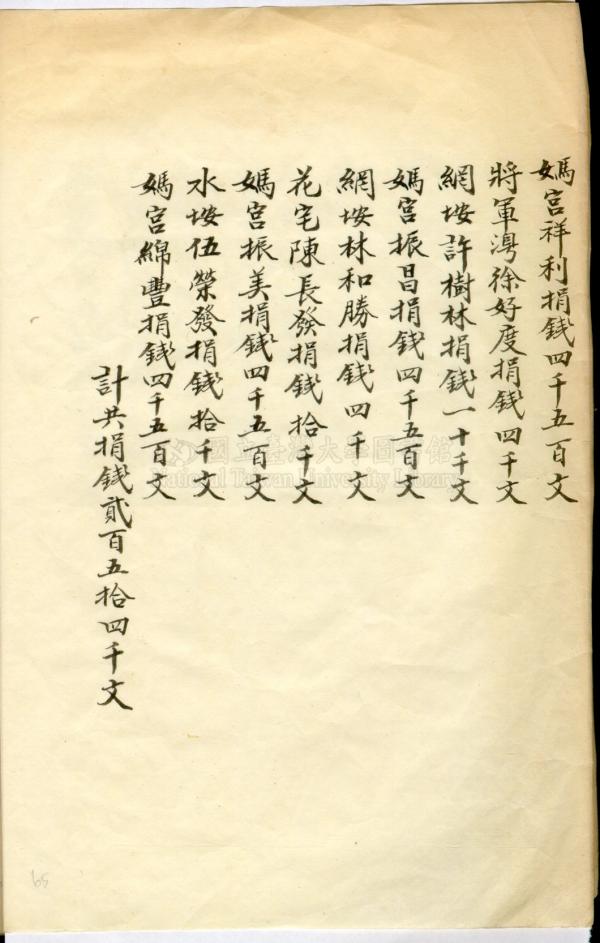 媽宮祥利捐錢四千五百文
將軍灣徐好度捐錢四千文
網垵許樹林捐錢一十千文
媽宮振昌捐錢四千五百文
網垵林和勝捐錢四千文
花宅陳長發捐錢拾千文
媽宮振美捐錢四千五百文
水垵伍榮發捐錢拾千文
媽宮綿豐捐錢四千五百文
計共捐錢貳百五拾四千文
國立臺灣大學圖書館
National Taiwan University Library
65